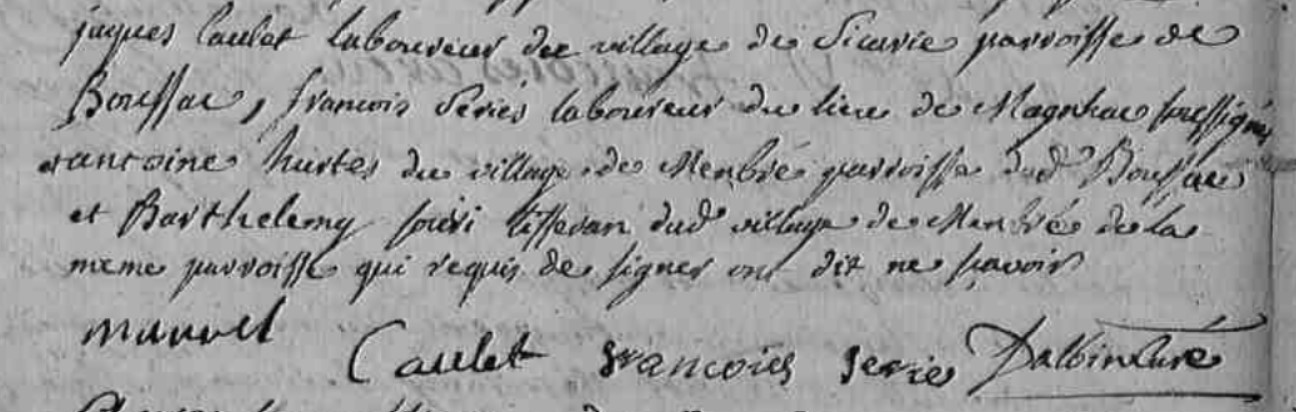 jaques Caulet laboureur du village de Sicarie parroisse de
Boussac, francois Series laboureur du lieu de Magnhac soussignés
antoine hurtes du village de Menbré parroisse dud Boussac
et Barthelemy souri tisseran dud village de Menbré de la
meme parroisse qui requis de signer ont dit ne scavoir
mauvel
Caulet francoies Series Dalbin Curé